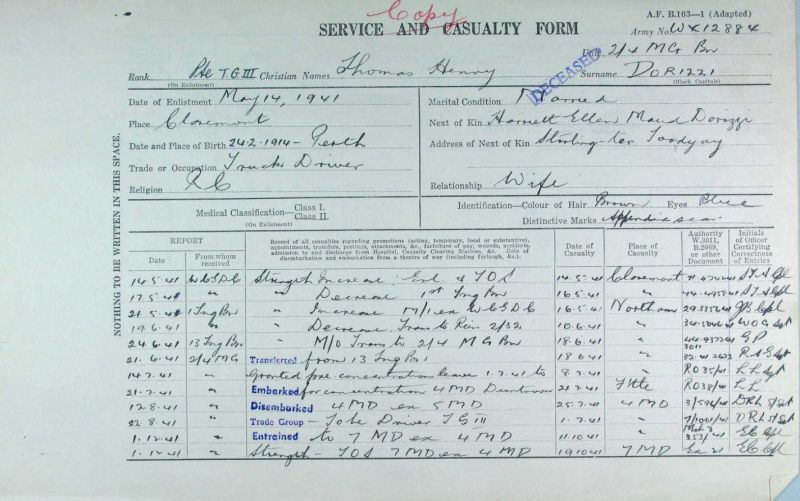 Copy
A.F. B.103—1 (Adapted)
SERVICE AND CASUALTY FORM
Army No. WX12884
Unit 2/4 MG Bn
DECEASED
Rank Pte T.G III Christian Names Thomas Henry Surname DORIZZI
(On Enlistment) (Block Capitals)
NOTHING TO BE WRITTEN IN THIS SPACE.
Date of Enlistment May 14, 1941
Place Claremont
Date and Place of Birth 24-2-1914 - Perth
Trade or Occupation Truck Driver
Religion R C
Marital Condition Married
Next of Kin Harriett Ellen Maud Dorizzi
Address of Next of Kin Stirling-ter Toodyay
Relationship Wife
Medical Classification—Class I.
Class II.
(On Enlistment)
Identification—Colour of Hair Brown Eyes Blue
Distinctive Marks Appendix scar
REPORT
Date
From whom received
Record of all casualties regarding promotions (acting, temporary, local or substantive), appointments, transfers, postings, attachments, &c., forfeiture of pay, wounds, accidents, admission to and discharge from Hospital, Casualty Clearing Stations, &c. Date of disembarkation and embarkation from a theatre of war (including furlough, &c.).
Date of Casualty
Place of Casualty
Authority W.3011, B.2069, or other Document
Initials of Officer Certifying Correctness of Entries
14.5.41 Strength Increase: Enl & TOS 14.5.41 Claremont
17.5.41 " " Decrease 1st Tng Bn 16.5.41 "
21.5.41 1 Tng Bn " Increase M/I ex 16.5.41 Northam
19.6.41 " " Decrease. Trans to Rein 2/32 10.6.41 "
24.6.41 13 Tng Bn " M/O Trans to 2/4 M G Bn 18.6.41 "
21.6.41 2/4 MG Transferred from 13 Tng Bn 18.6.41 "
14.7.41 " Granted pre concentration leave 1.7.41 to 8.7.41 " RO35/41
21.7.41 " Embarked for concentration 4 MD 21.7.41 F'tle RO38/41
12.8.41 " Disembarked 4 MD ex 5 MD 25.7.41 4 MD
22.8.41 " Trade Group - To be Driver T G III 1.7.41 "
1.12.41 " Entrained to 7 MD ex 4 MD 11.10.41 "
1.12.41 " Strength - TOS 7 MD ex 4 MD 19.10.41 7 MD